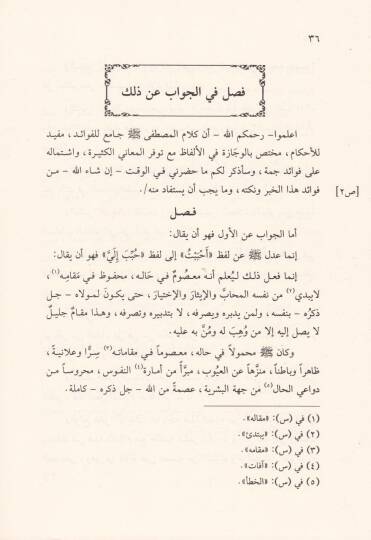 ٣٦
فصل في الجواب عن ذلك
اعلموا- رحمكم الله - أن كلام المصطفى ﷺ جامع للفوائد، مفيد
للأحكام، مختص بالوجَازة في الألفاظ مع توفر المعاني الكثيرة، واشتماله
على فوائد جمة، وسأذكر لكم ما حضرني في الوقت - إن شاء الله - من
فوائد هذا الخبر ونكته، وما يجب أن يستفاد منه/. [ص٢]
فصل
أما الجواب عن الأول فهو أن يقال:
إنما عدل ﷺ عن لفظ «أَحْبَبْتُ» إلى لفظ «حُبِّبَ إِلَيَّ» فهو أن يقال:
إنما فعل ذلك ليُعلم أنه معصومٌ في حَاله، محفوظ في مَقامِه(١)،
لايبدي(٢) من نفسه المحابَّ والإيثارَ والإختيارَ، حتى يكونَ لمولاه - جل
ذكرُه - بنفسه، ولمن يدبره ويصرفه، لا بتدبيره وتصرفه، وهذا مقامٌ جليلٌ
لا يصل إليه إلا من وُهِبَ له ومُنَّ به عليه.
وكان ﷺ محمولاً في حاله، معصوماً في مقاماته(٣) سِرًّا وعلانيةً،
ظاهراً وباطناً، منزَّهاً عن العيُوب، مبرَّأً من أمارة(٤) النفوس، محروساً من
دواعي الحال(٥) من جهة البشرية، عصمةً من الله - جل ذكره - كاملة.
(١) في (س): «مقاله».
(٢) في (س): «يبتدئ».
(٣) في (س): «مقامه».
(٤) في (س): «آفات».
(٥) في (س): «الخطأ».